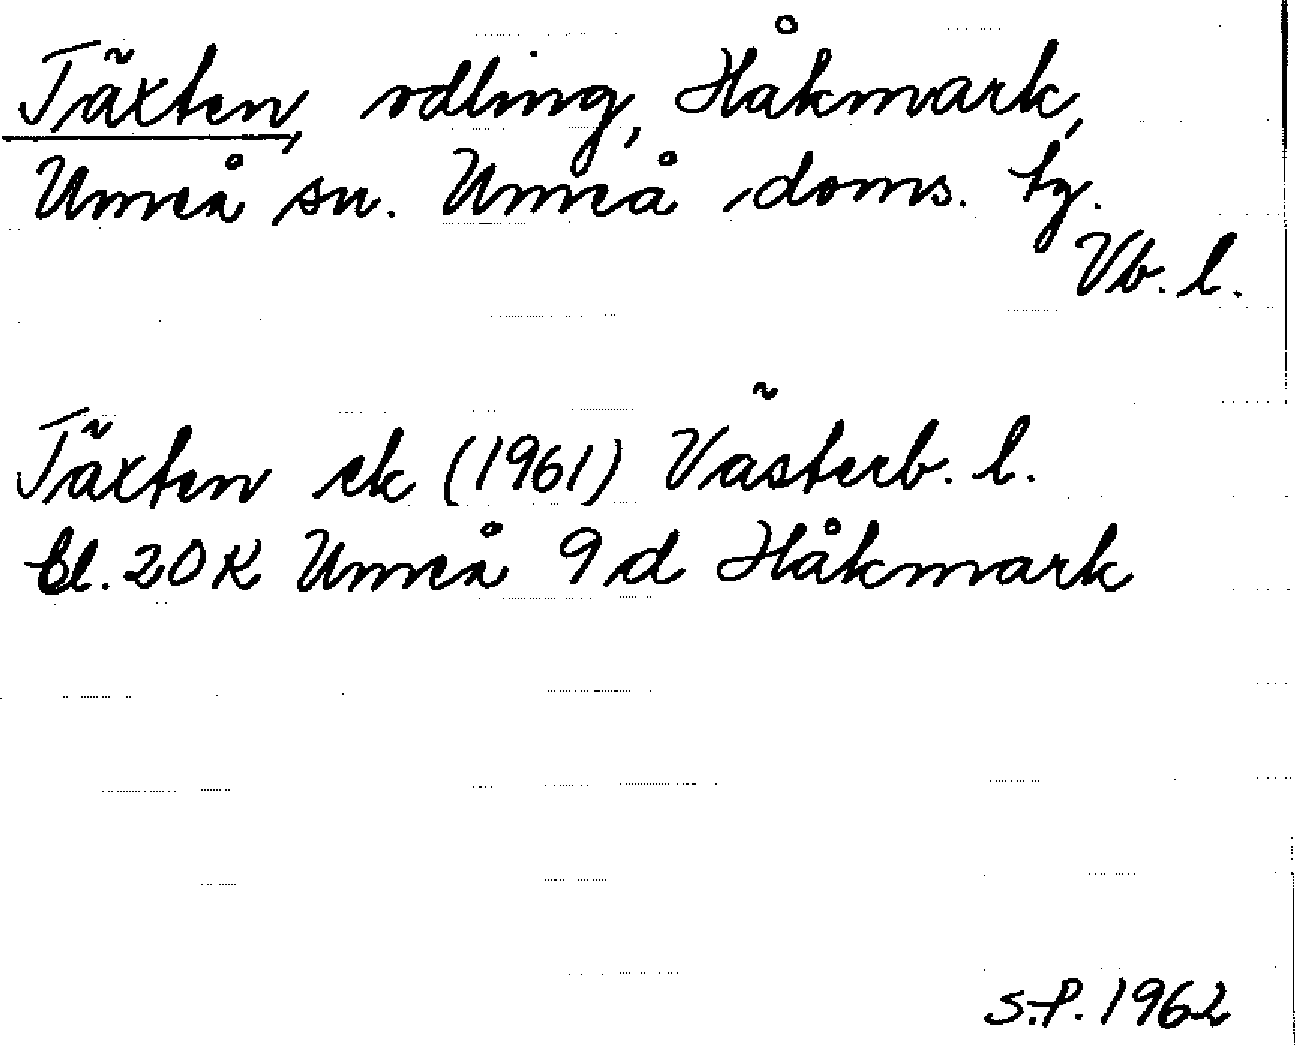 Täxten, odling, Håkmark,
Umeå sn. Umeå doms. tg.
Vb. l.
Täxten ek (1961) Västerb. l.
bl. 20 K Umeå 9 d Håkmark
S.P. 1962